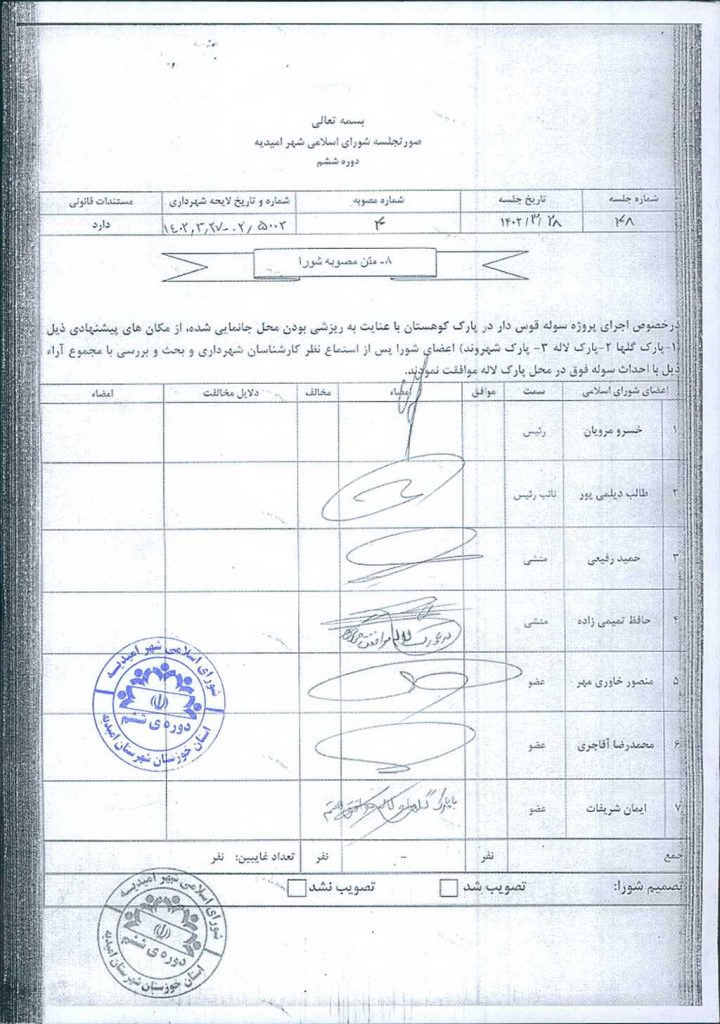 بسمه تعالی
صورتجلسه شورای اسلامی شهر امیدیه
دوره ششم
شماره جلسه تاریخ جلسه شماره مصوبه شماره و تاریخ لایحه شهرداری مستندات قانونی
۴۸ ۱۴۰۲/۳/۲۸ ۴ ۵۰۰۲/۰۲-۱۴۰۲,۳,۲۷ دارد
۸- متن مصوبه شورا
درخصوص اجرای پروژه سوله قوس دار در پارک کوهستان با عنایت به ریزشی بودن محل جانمایی شده، از مکان های پیشنهادی ذیل
(۱-پارک گلها ۲-پارک لاله ۳- پارک شهروند) اعضای شورا پس از استماع نظر کارشناسان شهرداری و بحث و بررسی با مجموع آراء
ذیل با احداث سوله فوق در محل پارک لاله موافقت نمودند.
اعضای شورای اسلامی سمت موافق امضاء مخالف دلایل مخالفت امضاء
۱ خسرو مرویان رئیس
۲ طالب دیلمی پور نائب رئیس
۳ حمید رفیعی منشی
۴ حافظ تمیمی زاده منشی
۵ منصور خاوری مهر عضو
۶ محمدرضا آقاجری عضو
۷ ایمان شریفات عضو
جمع نفر - نفر تعداد غایبین: نفر
تصمیم شورا: تصویب شد تصویب نشد
شورای اسلامی شهر امیدیه
دوره ی ششم
استان خوزستان شهرستان امیدیه
شورای اسلامی شهر امیدیه
دوره ی ششم
استان خوزستان شهرستان امیدیه